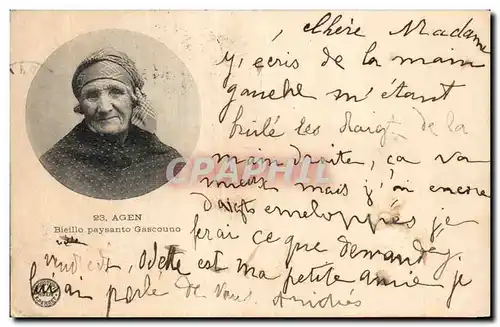 chère Madame
j'écris de la main
gauche m'étant
brulé les doigts de la
main droite, ça va
mieux mais j'ai encore
doigts enveloppés je
23. AGEN
ferai ce que demandez
Bieillo paysanto Gascouno
vendredi, Odette est ma petite amie je
lui ai parlé de vous. Amitiés